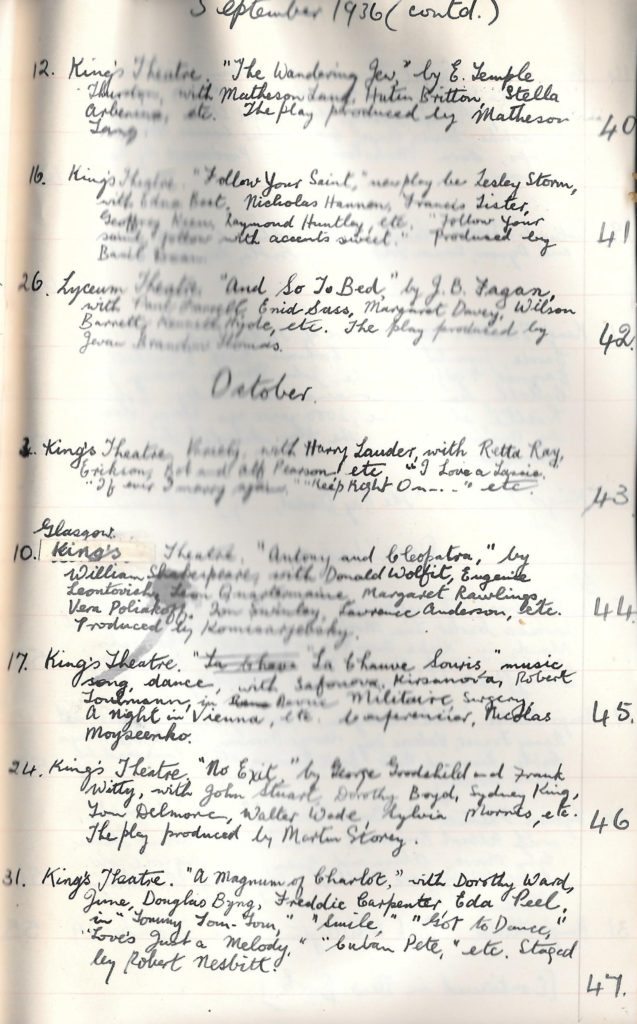 September 1936 (contd.)
12. King's Theatre. "The Wandering Jew," by E. Temple
Thurston, with Matheson Lang, Hutin Britton, Stella
Arbenina, etc. The play produced by Matheson
Lang. 40
16. King's Theatre. "Follow Your Saint," new play by Lesley Storm,
with Edna Best, Nicholas Hannen, Francis Lister,
Geoffrey Keen, Raymond Huntley, etc. "Follow your
saint, follow with accents sweet." Produced by
Basil 41
26. Lyceum Theatre. "And So To Bed," by J. B. Fagan,
with Enid Sass, Margaret Davey, Wilson
Barrett, Kenneth Hyde, etc. The play produced by
Jevan Brandon Thomas. 42.
October.
King's Theatre. Variety, with Harry Lauder, with Retta Ray,
Erikson, and Alf Pearson etc "I Love a Lassie.
"If ever I marry again," "Keep Right On...." etc. 43
Glasgow.
10. King's Theatre. "Antony and Cleopatra," by
William Shakespeare, with Donald Wolfit, Eugenie
Leontovich, Leon Quartermaine, Margaret Rawlings,
Vera Poliakoff, Lawrence Anderson, etc.
Produced by Komisarjebsky. 44
17. King's Theatre. "La Chauve Souris," music
song, dance, with Safonova, Kirsanova, Robert
in Militaire, Surgery,
A Night in Vienna, etc. Conferencier, Nicolas
Moyseenko. 45.
24. King's Theatre. "No Exit," by George Goodchild and Frank
Witty, with John Stuart, Dorothy Boyd, Sydney King,
Tom Delmore, Walter Wade, Sylvia Morris, etc.
The play produced by Martin Storey. 46
31. King's Theatre. "A Magnum of Charlot," with Dorothy Ward,
June, Douglas Byng, Freddie Carpenter Eda Peel,
in "Tommy Tom-Tom," "Smile," "Got to Dance,"
"Love's Just a Melody," "Cuban Pete," etc. Staged
by Robert Nesbitt. 47.